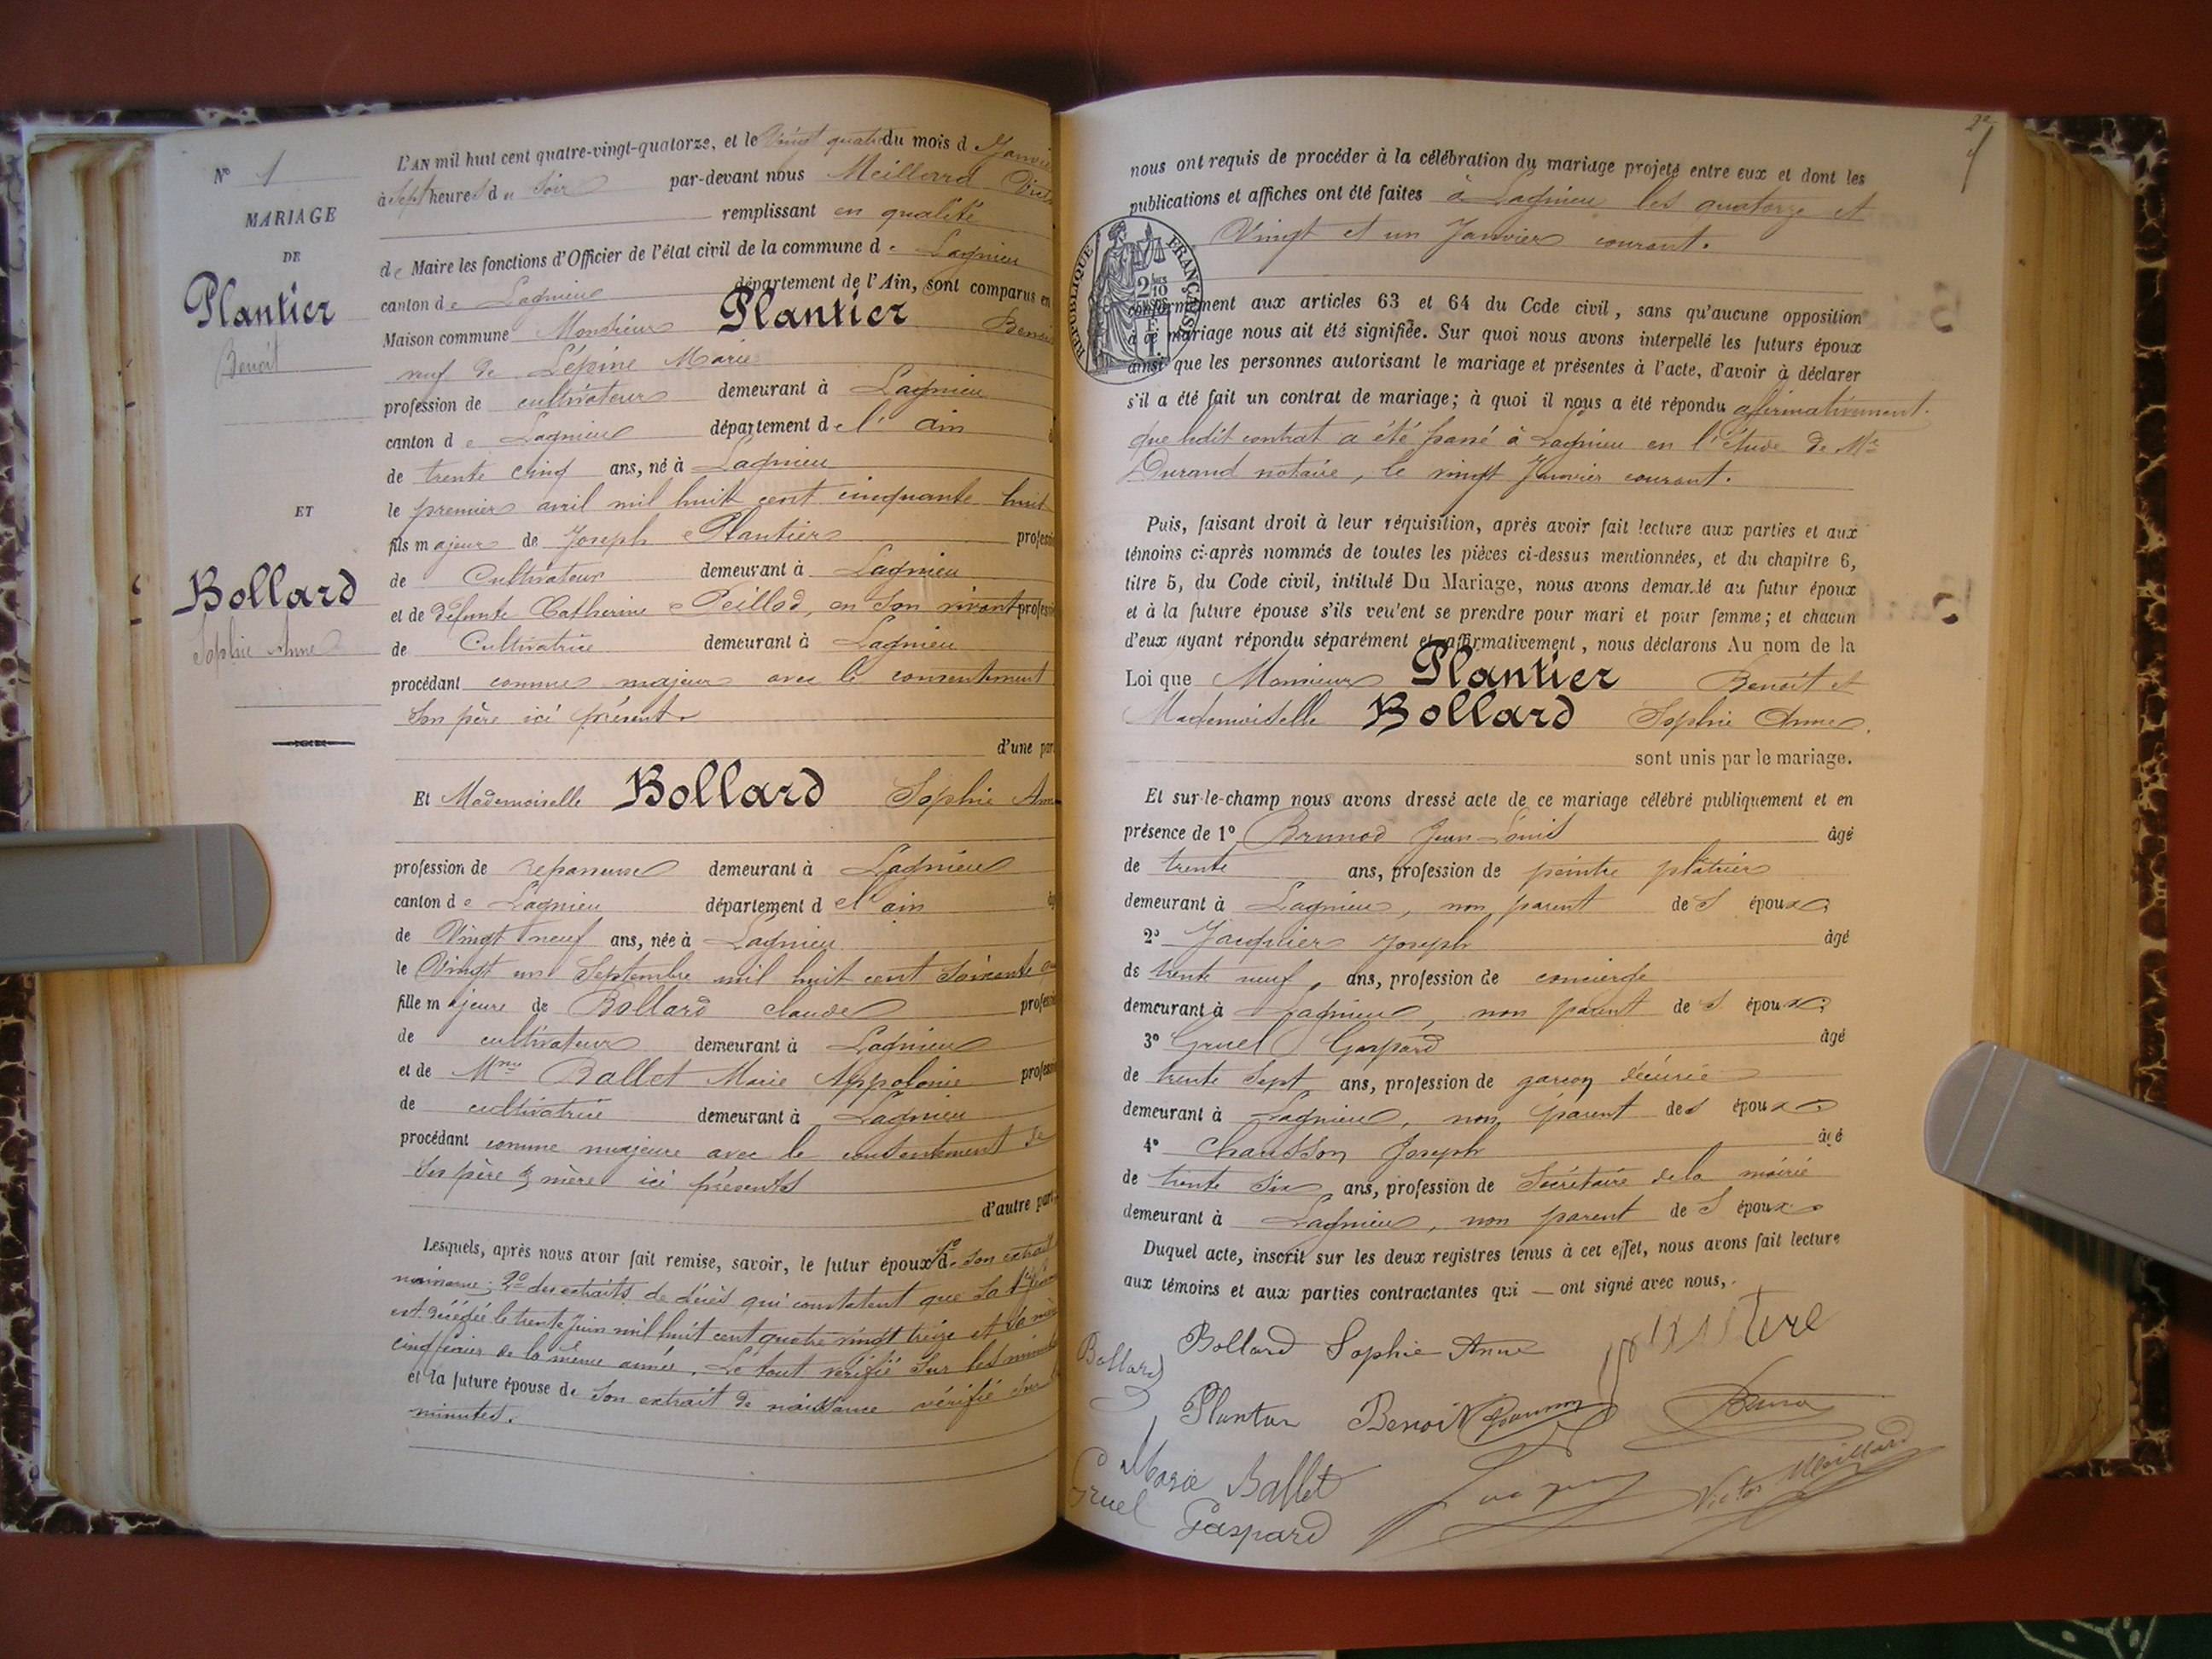 N° 1
MARIAGE
DE
Plantier
Benoit
ET
Bollard
Sophie Anne
L'AN mil huit cent quatre-vingt-quatorze, et le Vingt quatre du mois d Janvier
à Sept heures du Soir par-devant nous Meillard Victor
remplissant en qualité
de Maire les fonctions d'Officier de l'état civil de la commune de Lagnieu
canton de Lagnieu département de l'Ain, sont comparus en
Maison commune Monsieur Plantier Benoit
veuf de Lépine Marie
profession de cultivateur demeurant à Lagnieu
canton de Lagnieu département de l'ain
de trente cinq ans, né à Lagnieu
le premier avril mil huit cent cinquante huit
fils majeur de Joseph Plantier profession
de Cultivateur demeurant à Lagnieu
et de défunte Catherine Peillod, en son vivant profession
de Cultivatrice demeurant à Lagnieu
procédant comme majeur avec le consentement
Son père ici présent.
d'une part
Et Mademoiselle Bollard Sophie Anne
profession de repasseuse demeurant à Lagnieu
canton de Lagnieu département de l'ain
de Vingt neuf ans, née à Lagnieu
le Vingt un Septembre mil huit cent soixante
fille majeure de Bollard Claude profession
de cultivateur demeurant à Lagnieu
et de Mme Ballet Marie Appolonie profession
de cultivatrice demeurant à Lagnieu
procédant comme majeure avec le consentement de
Ses père & mère ici présents
d'autre part,
Lesquels, après nous avoir fait remise, savoir, le futur époux 1° de son extrait
naissance; 2° des extraits de décès qui constatent que sa 1ère femme
est décédée le trente Juin mil huit cent quatre vingt treize et sa mère
cinq février de la même année. Le tout vérifié sur les minutes
et la future épouse de son extrait de naissance vérifié sur
minutes.
nous ont requis de procéder à la célébration du mariage projeté entre eux et dont les
publications et affiches ont été faites à Lagnieu les quatorze et
Vingt et un Janvier courant.
RÉPUBLIQUE FRANÇAISE
conformément aux articles 63 et 64 du Code civil, sans qu'aucune opposition
à ce mariage nous ait été signifiée. Sur quoi nous avons interpellé les futurs époux
ainsi que les personnes autorisant le mariage et présentes à l'acte, d'avoir à déclarer
s'il a été fait un contrat de mariage; à quoi il nous a été répondu afirmativement.
que ledit contrat a été passé à Lagnieu en l'étude de Me
Durand notaire, le vingt Janvier courant.
Puis, faisant droit à leur réquisition, après avoir fait lecture aux parties et aux
témoins ci-après nommés de toutes les pièces ci-dessus mentionnées, et du chapitre 6,
titre 5, du Code civil, intitulé Du Mariage, nous avons demandé au futur époux
et à la future épouse s'ils veulent se prendre pour mari et pour femme; et chacun
d'eux ayant répondu séparément et affirmativement, nous déclarons Au nom de la
Loi que Monsieur Plantier Benoit et
Mademoiselle Bollard Sophie Anne
sont unis par le mariage.
Et sur-le-champ nous avons dressé acte de ce mariage célébré publiquement et en
présence de 1° Brunod Jean Louis âgé
de trente ans, profession de peintre plâtrier
demeurant à Lagnieu, non parent des époux
2° Jacquier Joseph âgé
de trente neuf ans, profession de concierge
demeurant à Lagnieu, non parent des époux
3° Gruel Gaspard âgé
de trente sept ans, profession de garçon d'écurie
demeurant à Lagnieu, non parent des époux
4° Chausson Joseph âgé
de trente six ans, profession de Secrétaire de la mairie
demeurant à Lagnieu, non parent des époux
Duquel acte, inscrit sur les deux registres tenus à cet effet, nous avons fait lecture
aux témoins et aux parties contractantes qui ont signé avec nous,
Bollard Bollard Sophie Anne
Plantier Benoit
Marie Ballet
Victor Meillard
Gruel Gaspard